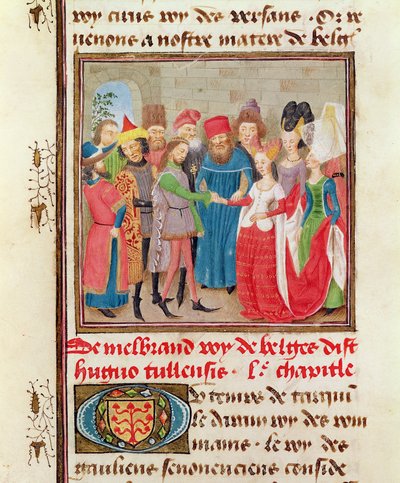 roy cirus roy des persans. Or re
uenons a nostre matere de belges
De melbrand roy de belges dist
hugue tullensis. Le chapitle
Du temps de tarqui
le darain roy des rom
mains. le roy des
gauliens senonenciens conside